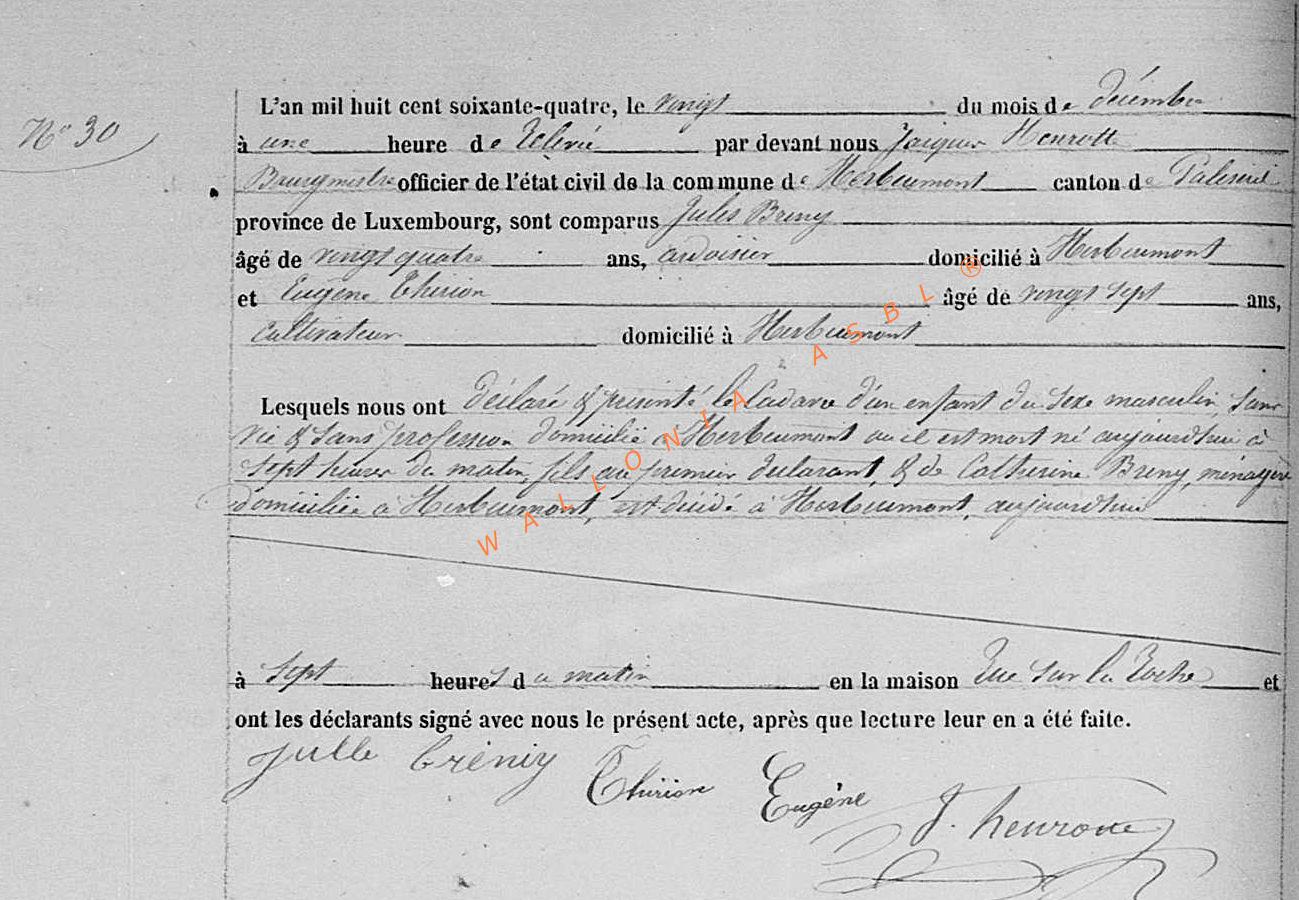 N° 30
L'an mil huit cent soixante-quatre, le vingt du mois de décembre
à une heure de relevée par devant nous Jacques Henrotte
Bourgmestre officier de l'état civil de la commune de Herbeumont canton de Paliseul
province de Luxembourg, sont comparus Jules Breny
âgé de vingt quatre ans, ardoisier domicilié à Herbeumont
et Eugène Thirion âgé de vingt sept ans,
cultivateur domicilié à Herbeumont
Lesquels nous ont déclaré & présenté le cadavre d'un enfant du sexe masculin sans
vie & sans profession domicilié à Herbeumont où il est mort né aujourd'hui à
sept heures du matin, fils du premier déclarant, & de Catherine Breny, ménagère
domiciliée à Herbeumont, est décédé à Herbeumont, aujourd'hui
à sept heures du matin en la maison rue sur la Roche et
ont les déclarants signé avec nous le présent acte, après que lecture leur en a été faite.
Julle Bréniy Thirion Eugéne J. henrotte
WALLONIA ASBL ®